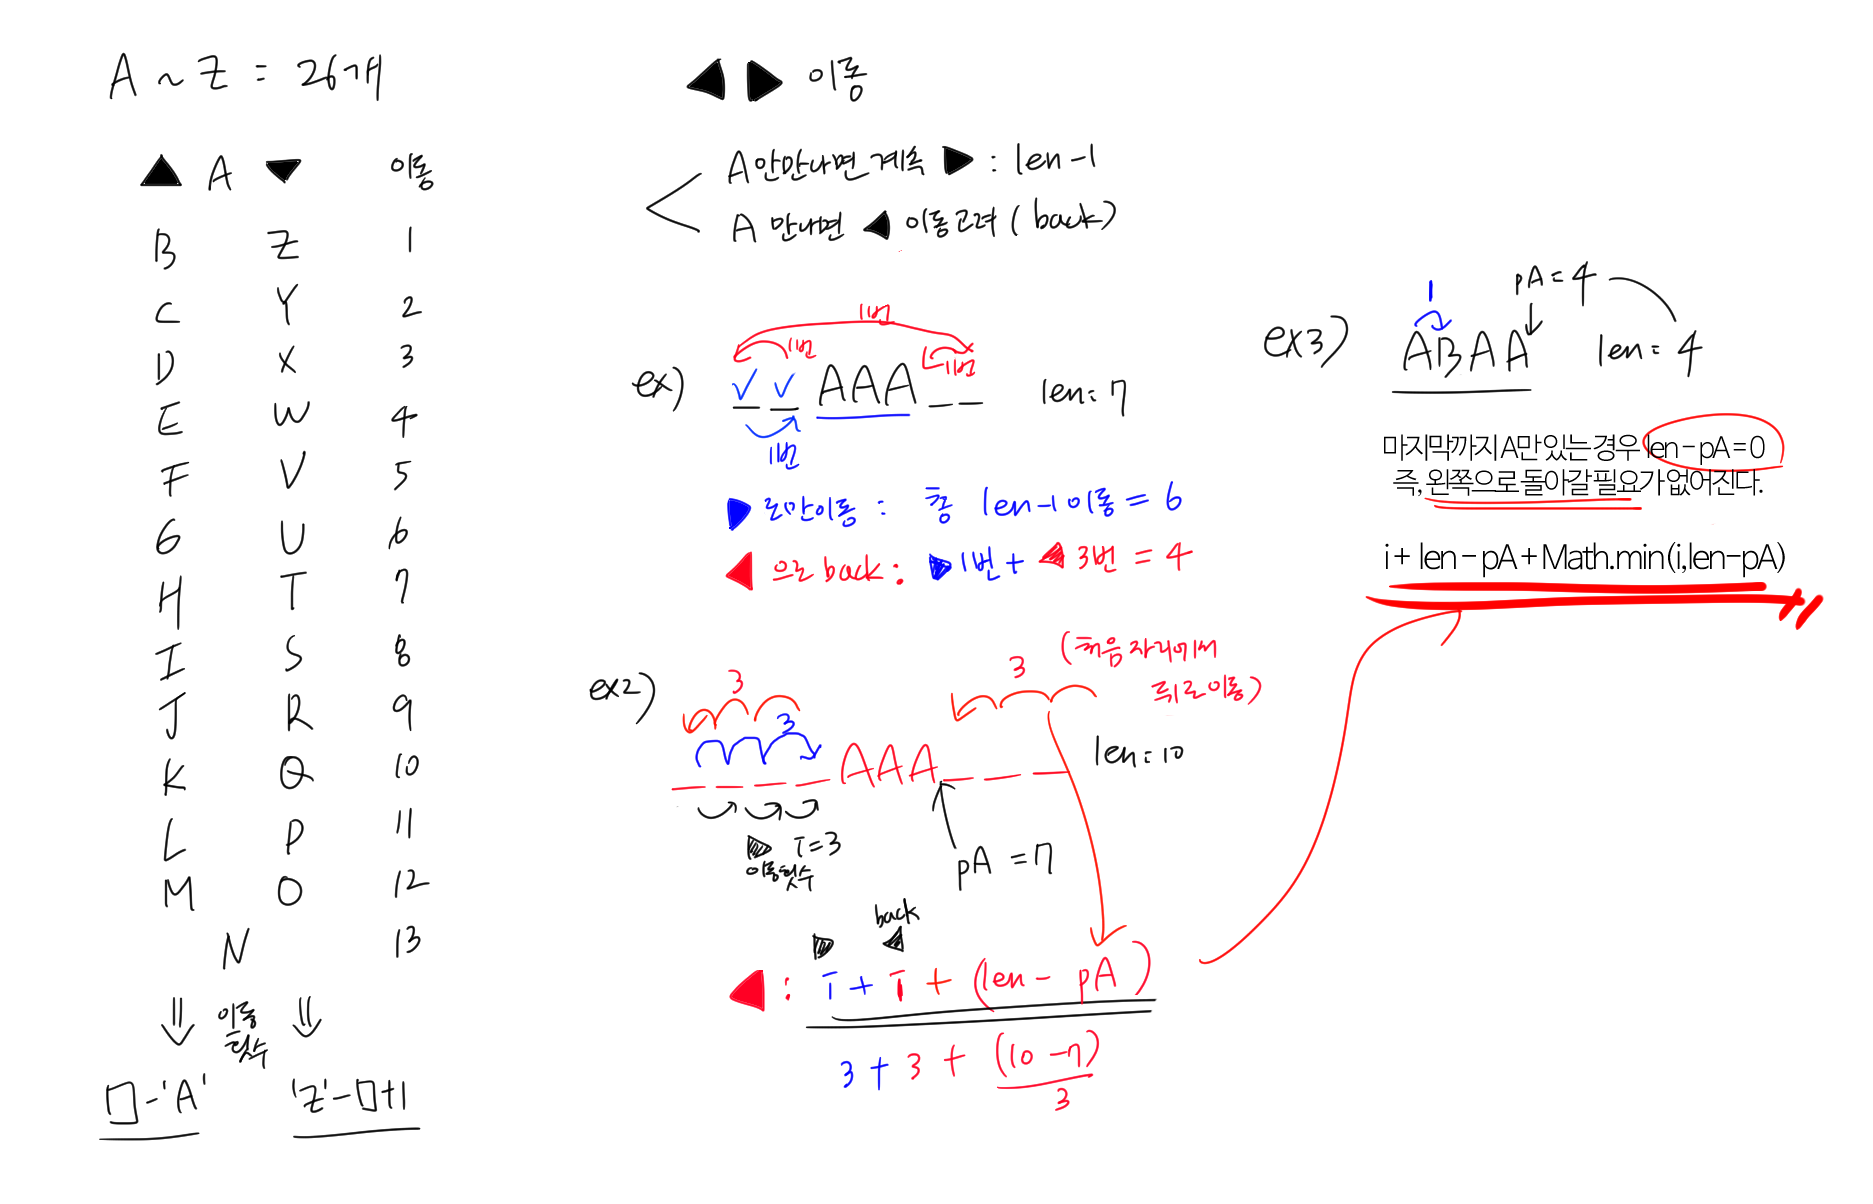 A ~ Z = 26개
▲ A ▼ 이동
B Z 1
C Y 2
D X 3
E W 4
F V 5
G U 6
H T 7
I S 8
J R 9
K Q 10
L P 11
M O 12
N 13
⇓ 이동 횟수 ⇓
□-'A' 'Z'-□+1
◀ ▶ 이동
A 안만나면 계속 ▶ : len-1
A 만나면 ◀ 이동고려 (back)
1번
1번
1번
ex) ✓ ✓ AAA _ _ len=7
1번
▶ 로만이동 : 총 len-1 이동 = 6
◀ 으로 back : ▶1번 + ◀ 3번 = 4
ex2)
3
3
3 (처음 자리에서
뒤로 이동)
_ _ _ _ AAA _ _ _ len=10
▶ i=3
이동횟수
pA = 7
▶ back ◀
◀ : i + i + (len - pA)
3 + 3 + (10 - 7)
3
pA = 4
1
ex3) ABAA len = 4
마지막까지 A만 있는 경우 len - pA = 0
즉, 왼쪽으로 돌아갈 필요가 없어진다.
i + len - pA + Math.min(i,len-pA)